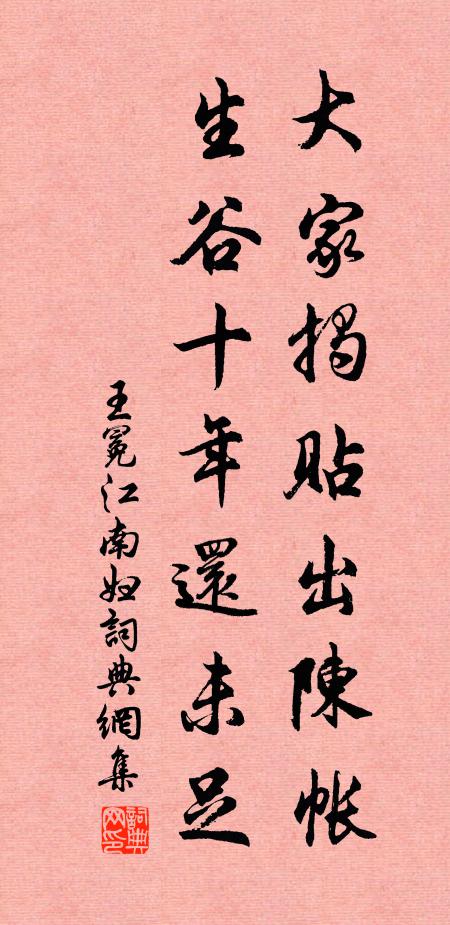 大家揭貼出陳帳
生谷十年還未足
王冕江南婦詞典網集
詞典網印